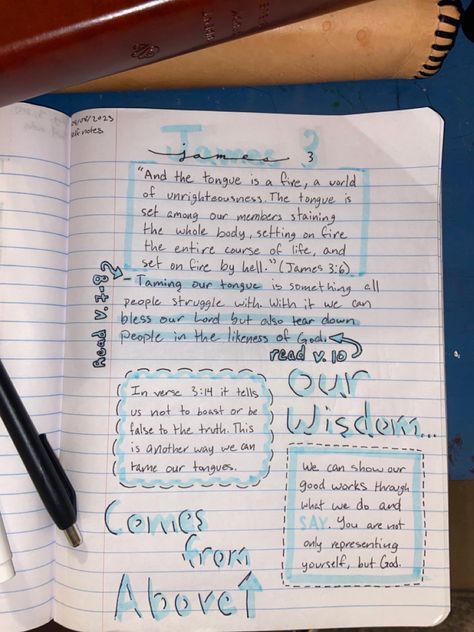 James 3
james 3
"And the tongue is a fire, a world
of unrighteousness. The tongue is
set among our members staining
the whole body, setting on fire
the entire course of life, and
set on fire by hell." (James 3:6)
Read v. 7-8
- Taming our tongue is something all
people struggle with. With it we can
bless our Lord but also tear down
people in the likeness of God.
read v. 10
In verse 3:14 it tells
us not to boast or be
false to the truth. This
is another way we can
tame our tongues.
our
Wisdom...
We can show our
good works through
what we do and
SAY. You are not
only representing
yourself, but God.
Comes
from
Above